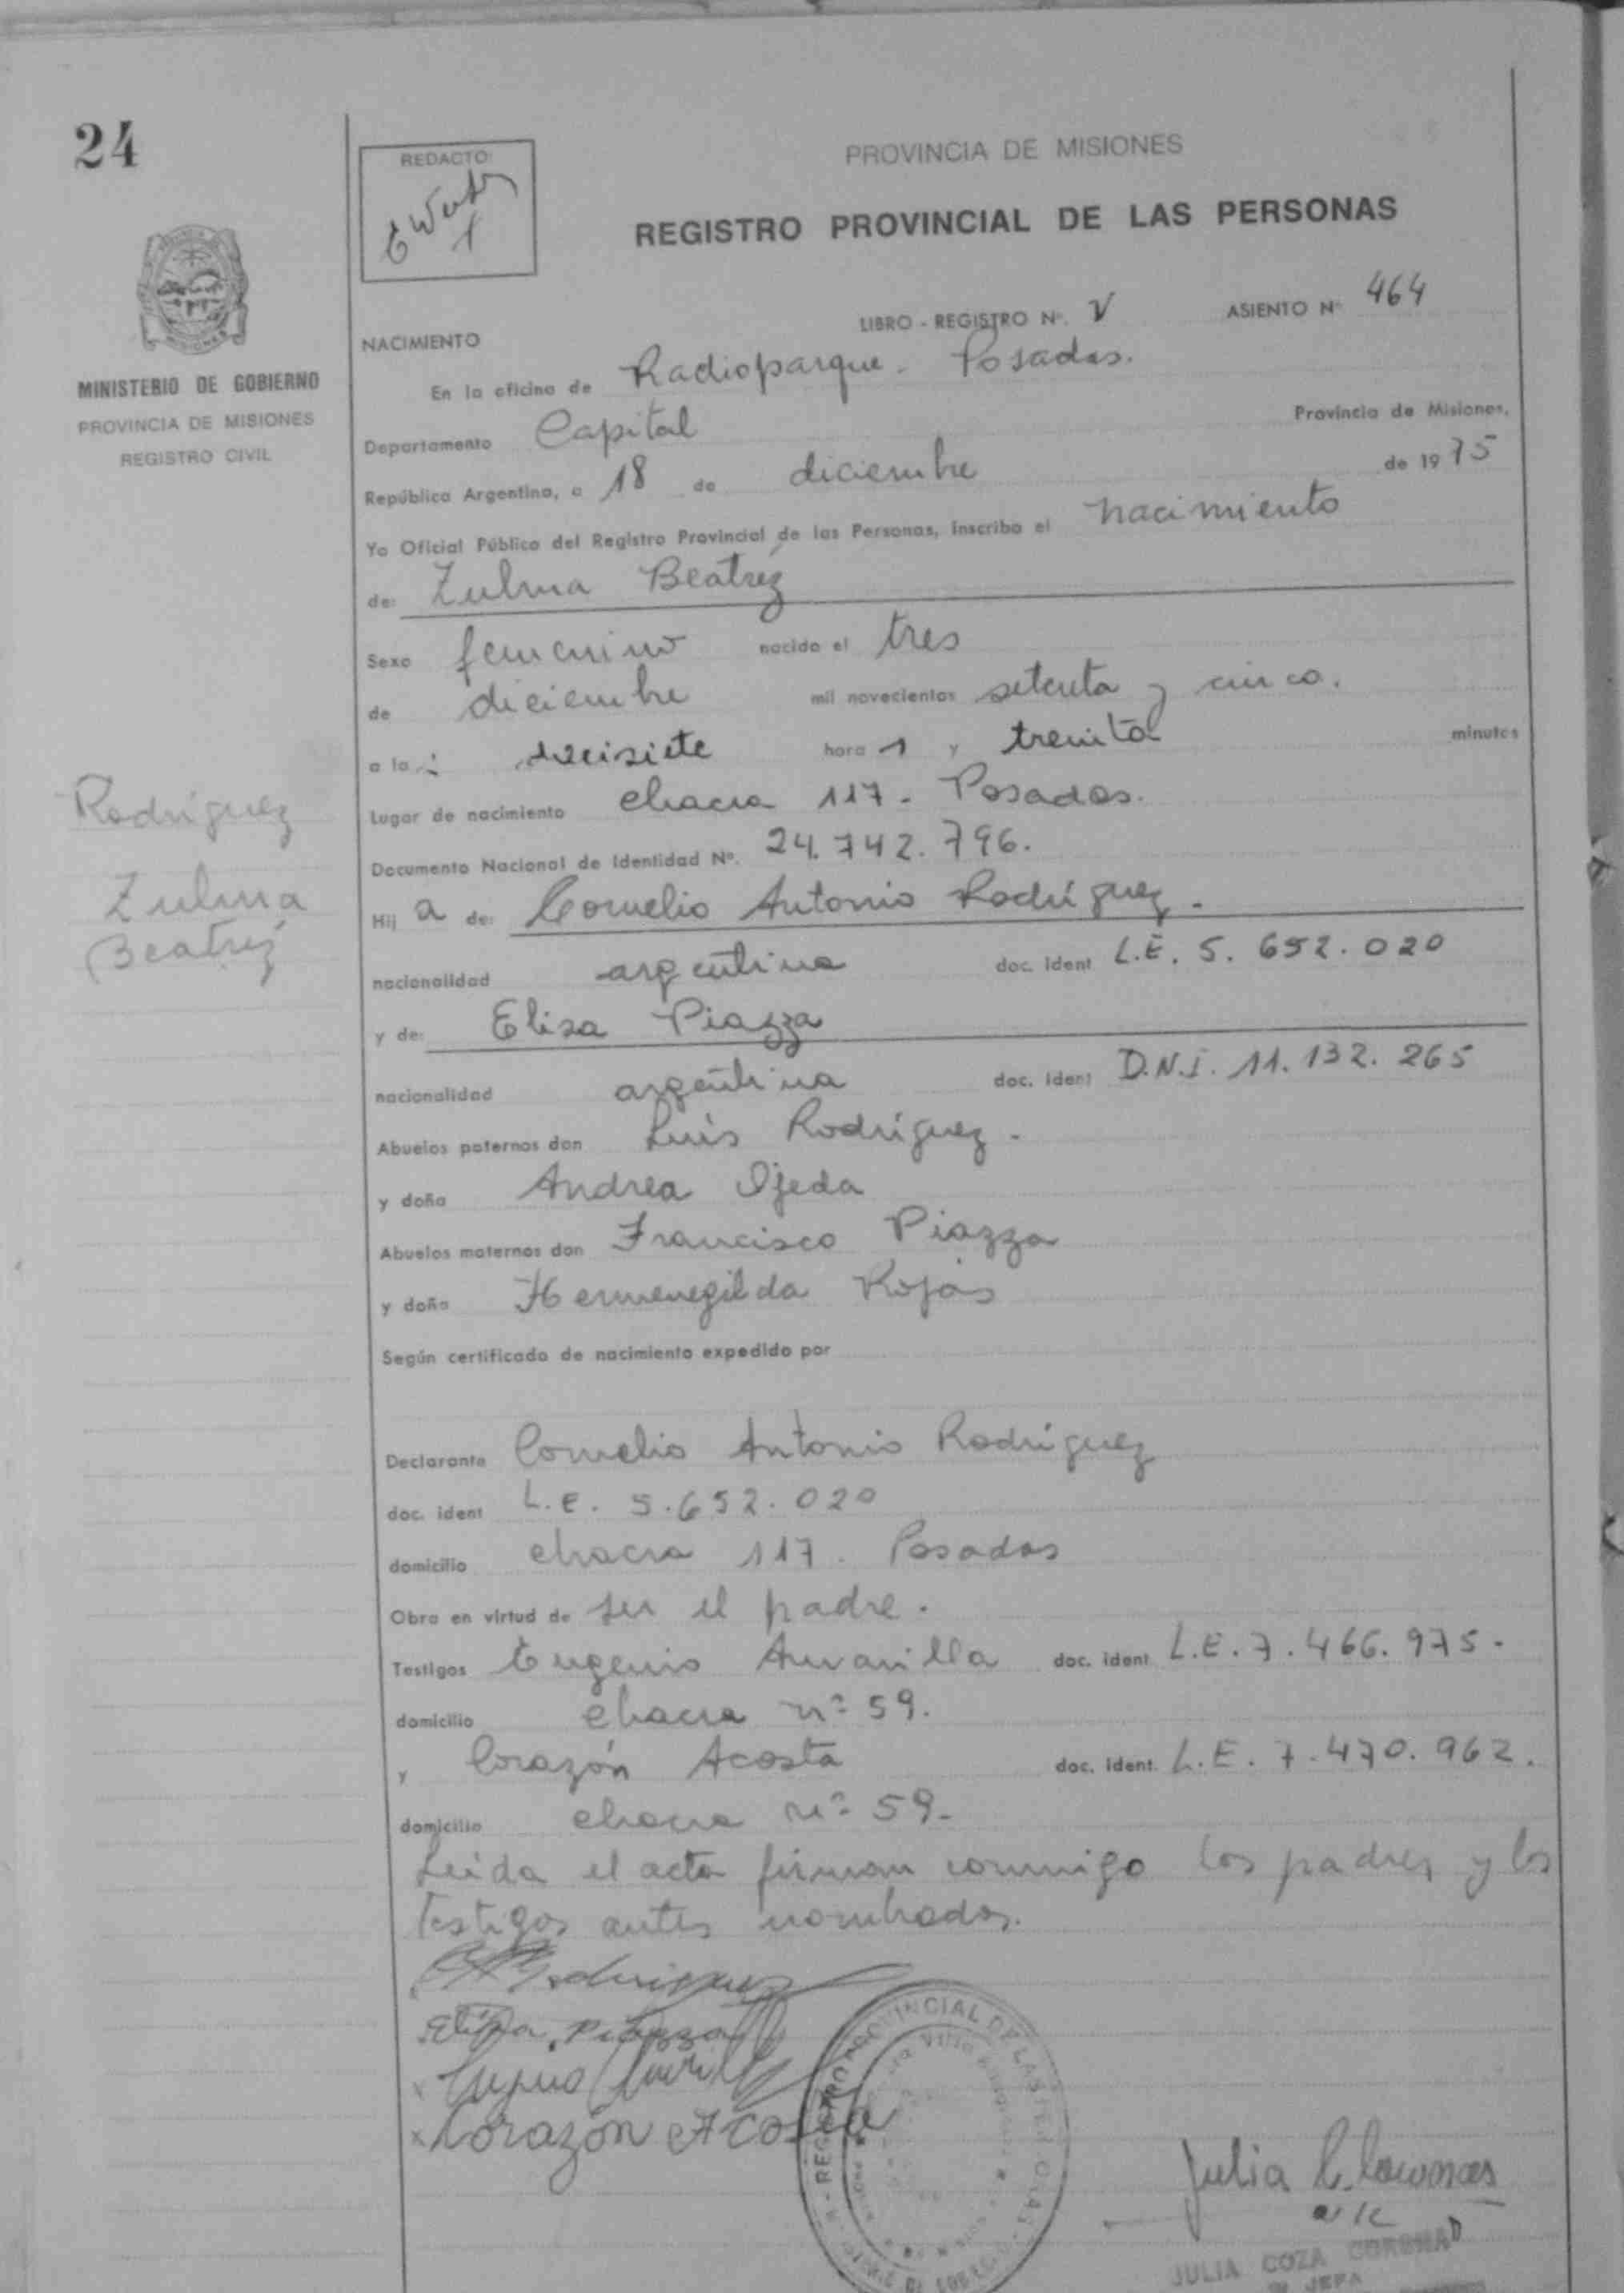 24
REDACTO:
PROVINCIA DE MISIONES
REGISTRO PROVINCIAL DE LAS PERSONAS
LIBRO - REGISTRO Nº. V ASIENTO Nº 464
MINISTERIO DE GOBIERNO
PROVINCIA DE MISIONES
REGISTRO CIVIL
NACIMIENTO
En la oficina de Radioparque. Posadas.
Departamento Capital Provincia de Misiones,
República Argentina, a 18 de diciembre de 1975
Yo Oficial Público del Registro Provincial de las Personas, inscribo el nacimiento
de: Zulma Beatriz
Sexo femenino nacido el tres
de diciembre mil novecientos setenta y cinco.
a la s diecisiete hora s y treinta minutos
Lugar de nacimiento chacra 117 - Posadas.
Documento Nacional de Identidad Nº. 24.742.796.
Rodríguez
Zulma
Beatriz
Hij a de: Cornelio Antonio Rodríguez.
nacionalidad argentina doc. ident L.E. 5.652.020
y de: Elisa Piazza
nacionalidad argentina doc. ident D.N.I. 11.132.265
Abuelos paternos don Luis Rodríguez.
y doña Andrea Ojeda
Abuelos maternos don Francisco Piazza
y doña Hermenegilda Rojas
Según certificado de nacimiento expedido por
Declarante Cornelio Antonio Rodríguez
doc. ident L.E. 5.652.020
domicilio chacra 117. Posadas
Obra en virtud de ser el padre.
Testigos Eugenio doc. ident L.E. 7.466.975.
domicilio chacra nº 59.
y Corazón Acosta doc. ident. L.E. 7.470.962.
domicilio chacra nº 59.
Leída el acta firman conmigo los padres y los
testigos antes nombrados.
Rodriguez
Elisa Piazza
Corazón Acosta
REGISTRO PROVINCIAL DE LAS PERSONAS
Julia C.
JULIA COZA
JEFA